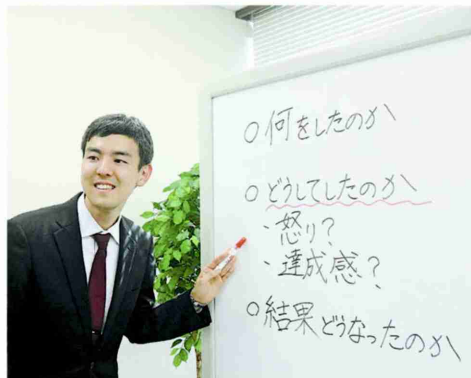 ○何をしたのか
○どうしてしたのか
・怒り?
・達成感?
○結果どうなったのか